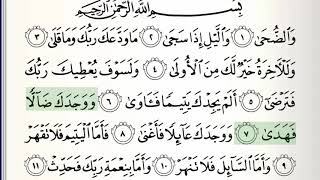 بِسْمِ ٱللَّهِ ٱلرَّحْمَٰنِ ٱلرَّحِيمِ
وَٱلضُّحَىٰ ١ وَٱلَّيْلِ إِذَا سَجَىٰ ٢ مَا وَدَّعَكَ رَبُّكَ وَمَا قَلَىٰ ٣
وَلَلْآخِرَةُ خَيْرٌ لَّكَ مِنَ ٱلْأُولَىٰ ٤ وَلَسَوْفَ يُعْطِيكَ رَبُّكَ
فَتَرْضَىٰ ٥ أَلَمْ يَجِدْكَ يَتِيمًا فَـَٔاوَىٰ ٦ وَوَجَدَكَ ضَآلًّا
فَهَدَىٰ ٧ وَوَجَدَكَ عَآئِلًا فَأَغْنَىٰ ٨ فَأَمَّا ٱلْيَتِيمَ فَلَا تَقْهَرْ
٩ وَأَمَّا ٱلسَّآئِلَ فَلَا تَنْهَرْ ١٠ وَأَمَّا بِنِعْمَةِ رَبِّكَ فَحَدِّثْ ١١